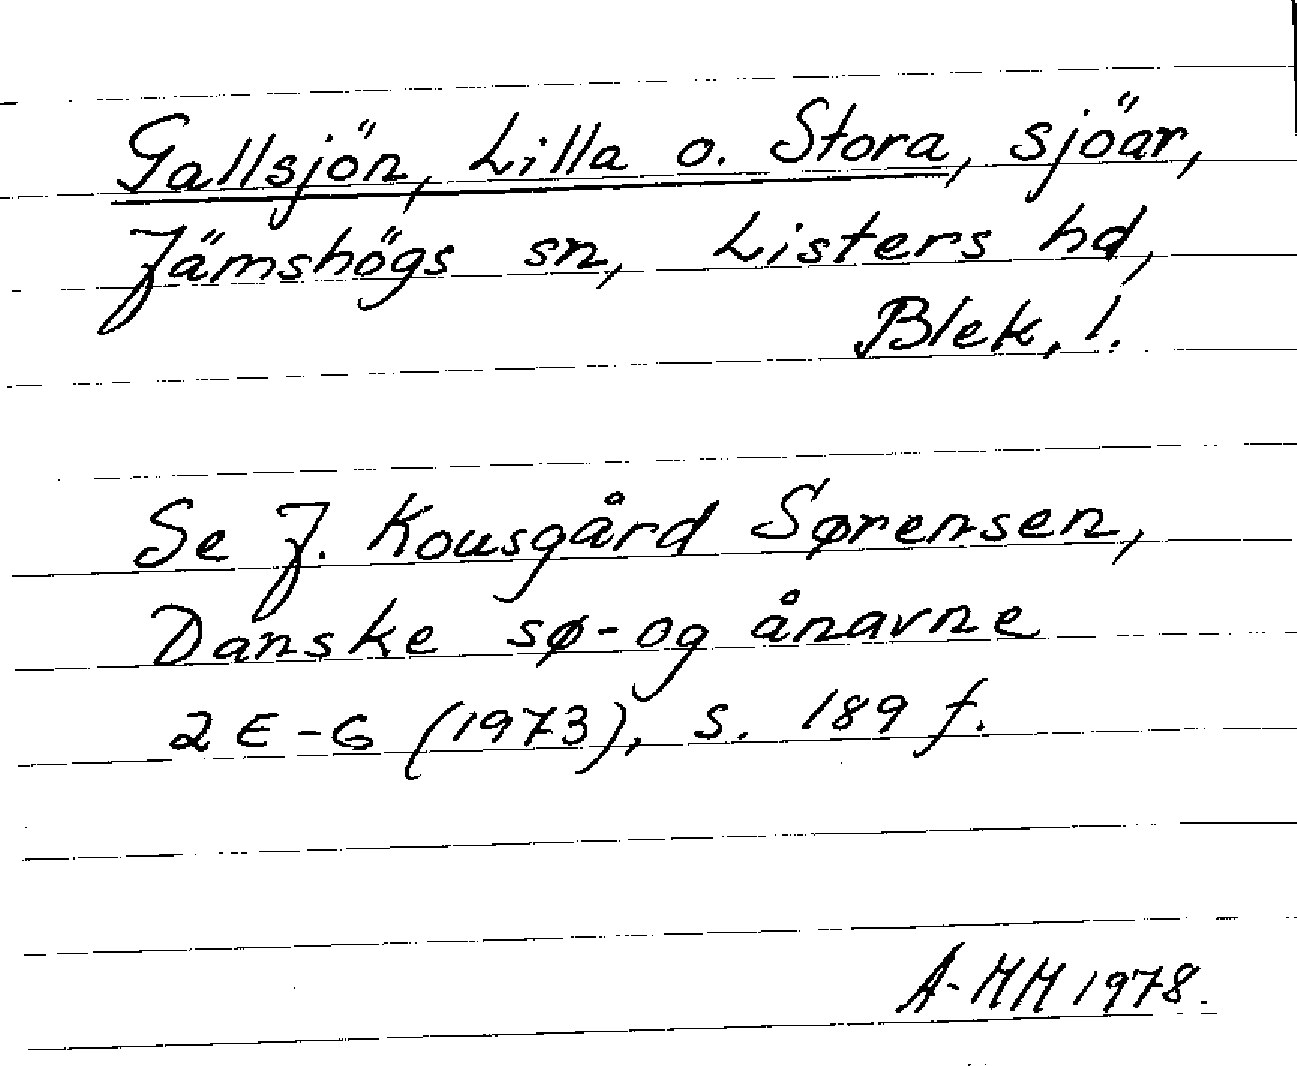 Gallsjön, Lilla o. Stora, sjöar,
Jämshögs sn, Listers hd,
Blek. l.
Se J. Kousgård Sørensen,
Danske sø- og ånavne
2 E-G (1973), s. 189 f.
A-HH 1978.